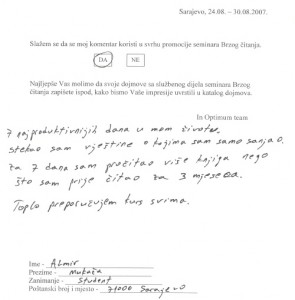 Sarajevo, 24.08. – 30.08.2007.
Slažem se da se moj komentar koristi u svrhu promocije seminara Brzog čitanja.
DA NE
Najljepše Vas molimo da svoje dojmove sa službenog dijela seminara Brzog
čitanja zapišete ispod, kako bismo Vaše impresije uvrstili u katalog dojmova.
In Optimum team
7 najproduktivnijih dana u mom životu.
Stekao sam vještine o kojima sam samo sanjao.
Za 7 dana sam pročitao više knjiga nego
što sam prije čitao za 3 mjeseca.
Toplo preporučujem kurs svima.
Ime - Almir
Prezime - Mukača
Zanimanje - Student
Poštanski broj i mjesto - 71000 Sarajevo